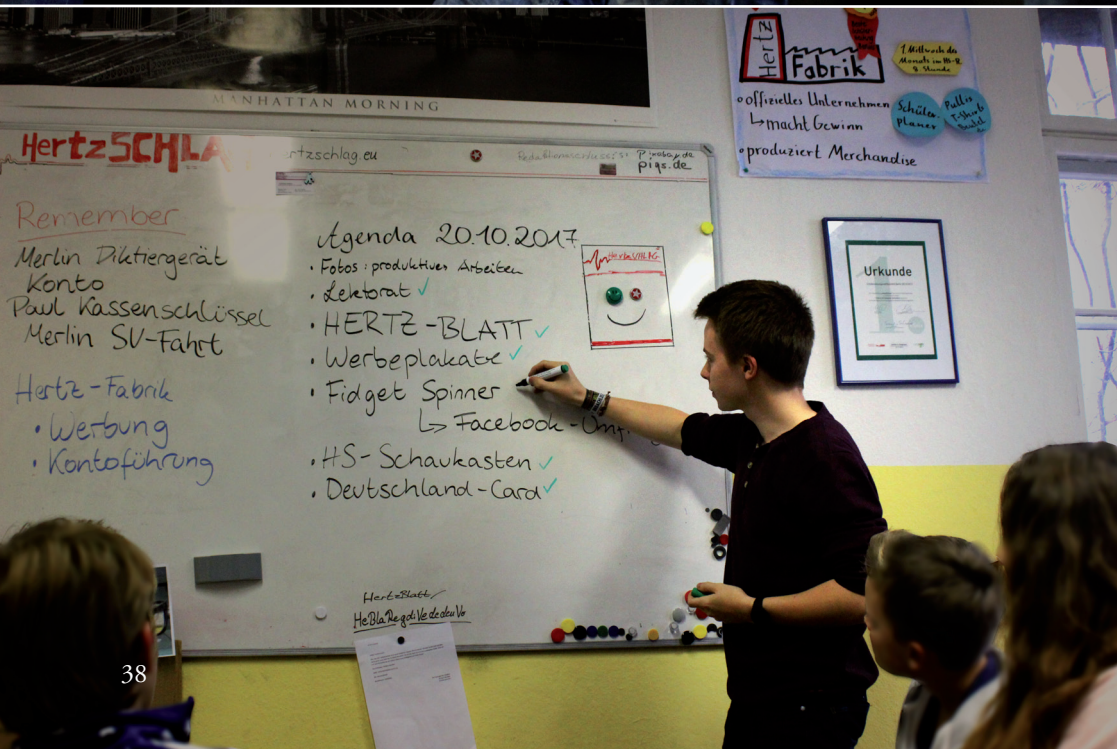 MANHATTAN MORNING
Hertz
Fabrik
1. Mittwoch des
Monats im
9. Stunde
• offizielles Unternehmen
↳ macht Gewinn
• produziert Merchandise
Schüler-
planer
Pullis
T-Shirts
Beutel
HertzSCHLA
rtzschlag.eu
Pixabay.de
piqs.de
Remember
Merlin Diktiergerät
Konto
Paul Kassenschlüssel
Merlin SV-Fahrt
Hertz-Fabrik
• Werbung
• Kontoführung
Agenda 20.10.2017
• Fotos: produktives Arbeiten
• Lektorat ✓
• HERTZ-BLATT ✓
• Werbeplakate ✓
• Fidget Spinner
↳ Facebook-Umf
• HS-Schaukasten ✓
• Deutschland-Card ✓
Urkunde
1
HertzBlatt
HeBlaRegdiVededeuVe
38